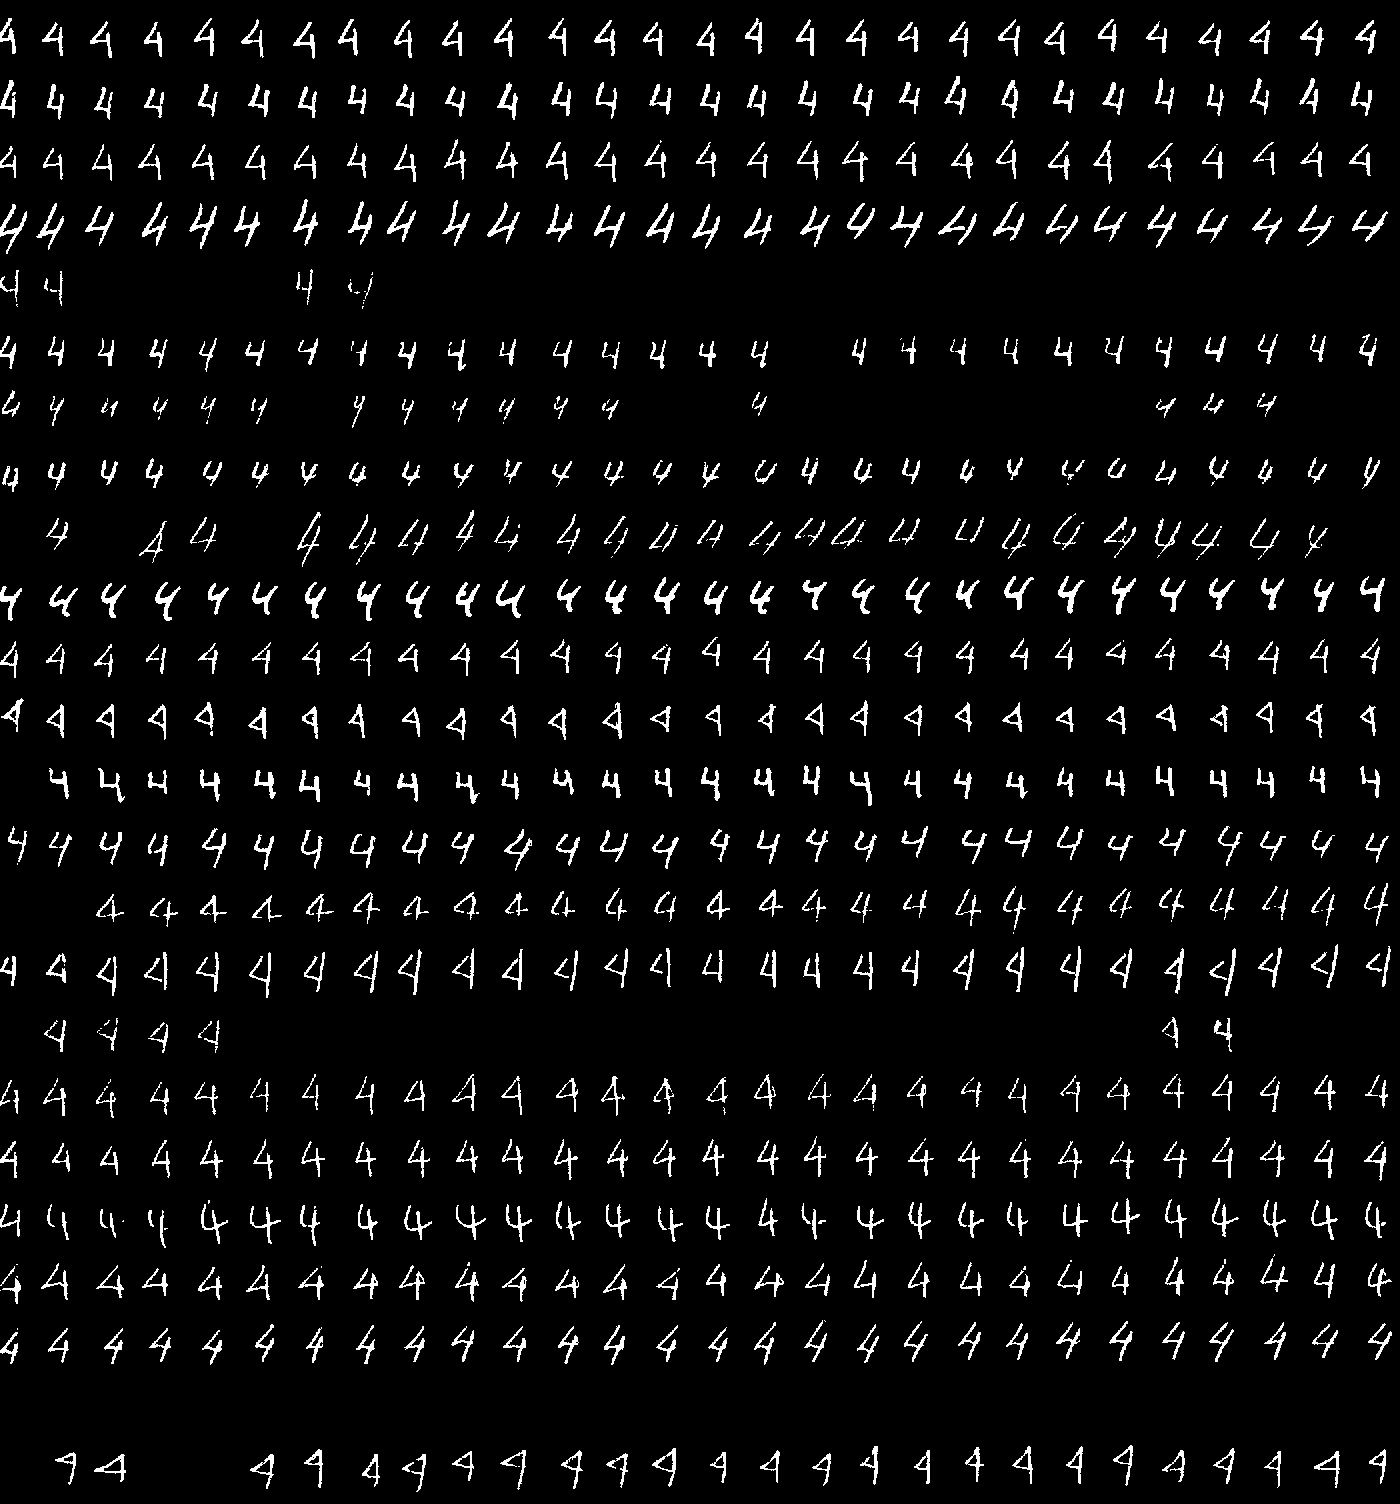 4 4 4 4 4 4 4 4 4 4 4 4 4 4 4 4 4 4 4 4 4 4 4 4 4 4 4 4
4 4 4 4 4 4 4 4 4 4 4 4 4 4 4 4 4 4 4 4 4 4 4 4 4 4 4 4
4 4 4 4 4 4 4 4 4 4 4 4 4 4 4 4 4 4 4 4 4 4 4 4 4 4 4 4
4 4 4 4 4 4 4 4 4 4 4 4 4 4 4 4 4 4 4 4 4 4 4 4 4 4 4 4
4 4 4 4
4 4 4 4 4 4 4 4 4 4 4 4 4 4 4 4 4 4 4 4 4 4 4 4 4 4 4
4 4 4 4 4 4 4 4 4 4 4 4 4 4 4 4
4 4 4 4 4 4 4 4 4 4 4 4 4 4 4 4 4 4 4 4 4 4 4 4 4 4 4 4
4 4 4 4 4 4 4 4 4 4 4 4 4 4 4 4 4 4 4 4 4 4 4 4
4 4 4 4 4 4 4 4 4 4 4 4 4 4 4 4 4 4 4 4 4 4 4 4 4 4 4 4
4 4 4 4 4 4 4 4 4 4 4 4 4 4 4 4 4 4 4 4 4 4 4 4 4 4 4 4
4 4 4 4 4 4 4 4 4 4 4 4 4 4 4 4 4 4 4 4 4 4 4 4 4 4 4 4
4 4 4 4 4 4 4 4 4 4 4 4 4 4 4 4 4 4 4 4 4 4 4 4 4 4 4
4 4 4 4 4 4 4 4 4 4 4 4 4 4 4 4 4 4 4 4 4 4 4 4 4 4 4 4
4 4 4 4 4 4 4 4 4 4 4 4 4 4 4 4 4 4 4 4 4 4 4 4 4 4
4 4 4 4 4 4 4 4 4 4 4 4 4 4 4 4 4 4 4 4 4 4 4 4 4 4 4 4
4 4 4 4 4 4
4 4 4 4 4 4 4 4 4 4 4 4 4 4 4 4 4 4 4 4 4 4 4 4 4 4 4 4
4 4 4 4 4 4 4 4 4 4 4 4 4 4 4 4 4 4 4 4 4 4 4 4 4 4 4 4
4 4 4 4 4 4 4 4 4 4 4 4 4 4 4 4 4 4 4 4 4 4 4 4 4 4 4 4
4 4 4 4 4 4 4 4 4 4 4 4 4 4 4 4 4 4 4 4 4 4 4 4 4 4 4 4
4 4 4 4 4 4 4 4 4 4 4 4 4 4 4 4 4 4 4 4 4 4 4 4 4 4 4 4
4 4 4 4 4 4 4 4 4 4 4 4 4 4 4 4 4 4 4 4 4 4 4 4 4